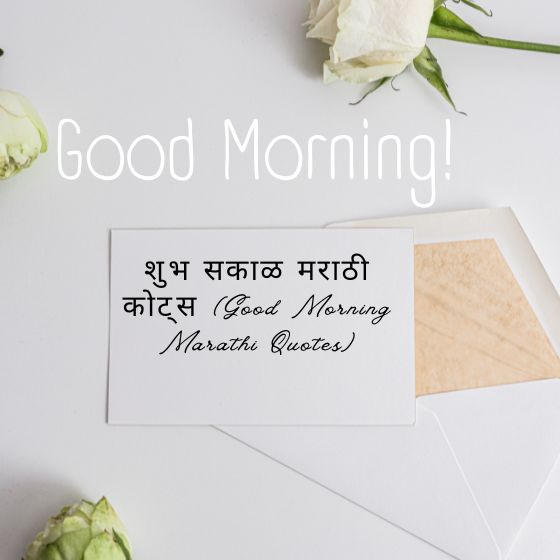 Good Morning!
शुभ सकाळ मराठी
कोट्स (Good Morning
Marathi Quotes)